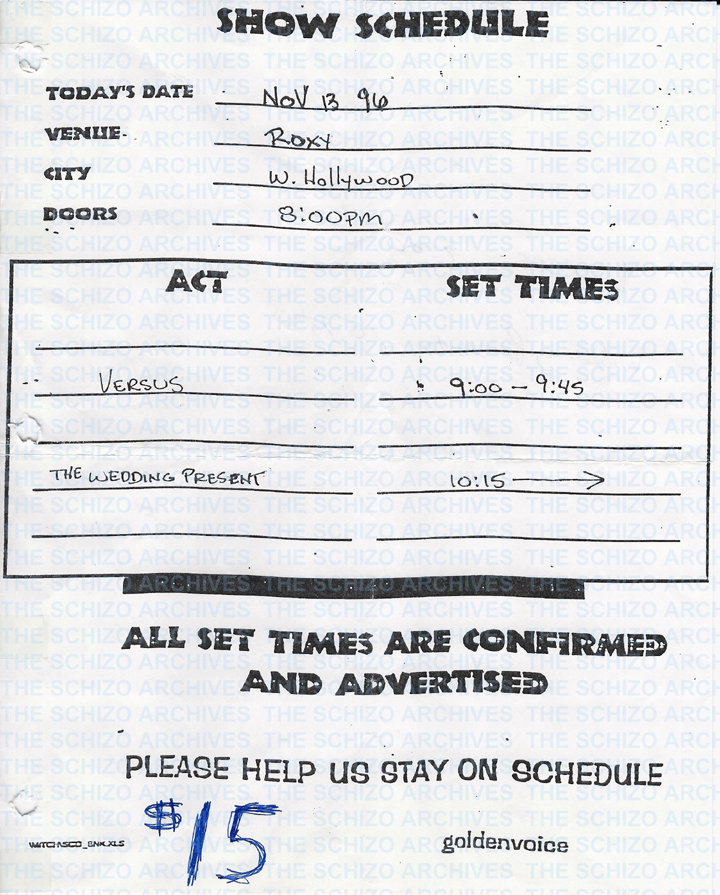 SHOW SCHEDULE
TODAY'S DATE NOV 13 96
VENUE ROXY
CITY W. HOLLYWOOD
DOORS 8:00PM
ACT SET TIMES
VERSUS 9:00 - 9:45
THE WEDDING PRESENT 10:15 →
ALL SET TIMES ARE CONFIRMED
AND ADVERTISED
PLEASE HELP US STAY ON SCHEDULE
$15
goldenvoice
THE SCHIZO ARCHIVES